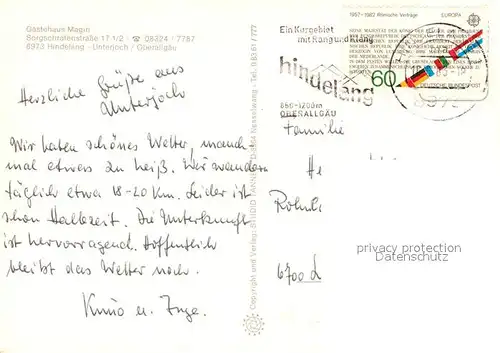 Gästehaus Magin
Sorgschrofenstraße 17 1/2 · ☎ 08324 / 7787
8973 Hindelang - Unterjoch / Oberallgäu
Herzliche Grüße aus
Unterjoch
Wir haben schönes Wetter, manch-
mal etwas zu heiß. Wir wandern
täglich etwa 18-20 Km. Leider ist
schon Halbzeit. Die Unterkunft
ist hervorragend. Hoffentlich
bleibt das Wetter noch.
Kuno u. Inge.
Copyright und Verlag:
Ein Kurgebiet
mit Rang und Klang
hindelang
850-1200m
OBERALLGÄU
1957-1982 Römische Verträge EUROPA
60
DEUTSCHE BUNDESPOST
Familie
He
6700 L
privacy protection
Datenschutz